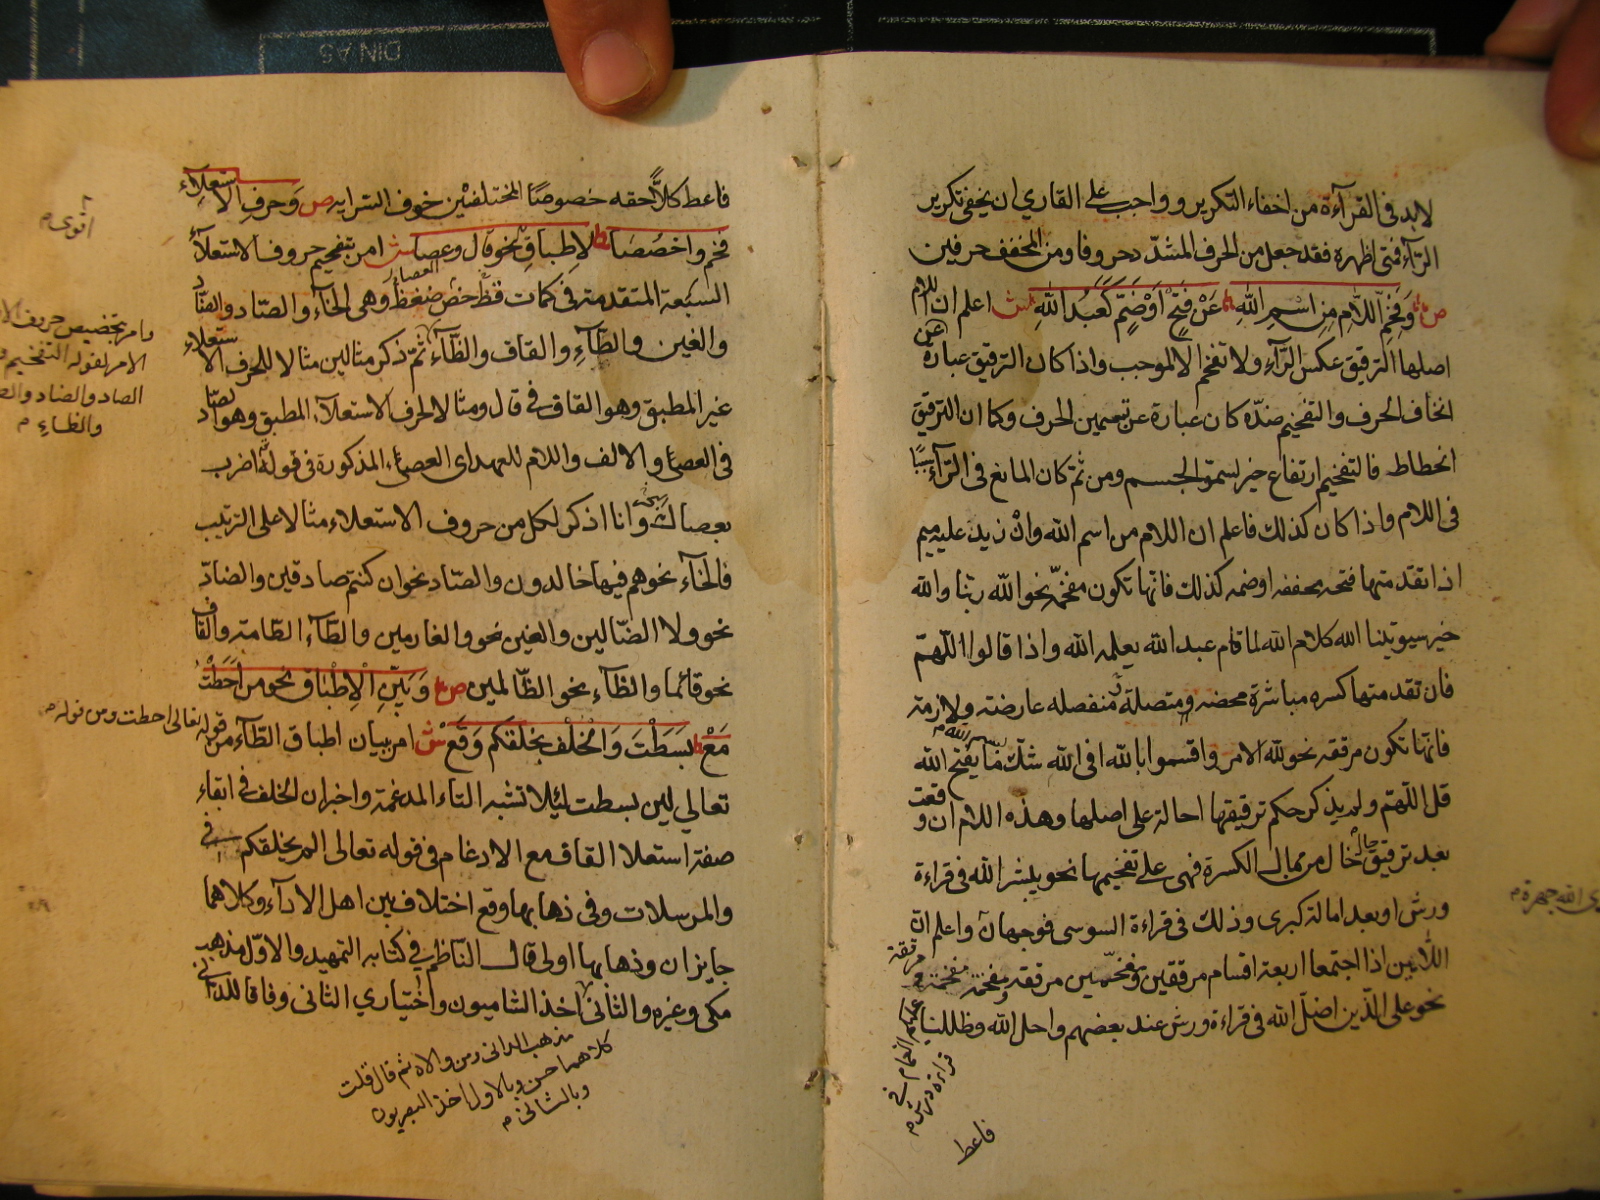 لابد فى القرآءة من اخفاء التكرير وواجب على القاري ان يخفى تكرير
الرآء فمتى اظهره فقد جعل من الحرف المشدد حروفا ومن المخفف حرفين
ص وَفَخِّمِ اللَّامَ مِنِ اسْمِ اللهِ عَنْ فَتْحٍ اَوْ ضَمٍّ كَعَبْدُ اللهِ ش اعلم ان اللام
اصلها الترقيق عكس الرآء ولا تفخم الا لموجب واذا كان الترقيق عبارة عن
انحاف الحرف والتفخيم ضده كان عبارة عن تسمين الحرف وكما ان الترقيق
انحطاط فالتفخيم ارتفاع لسمو الجسم ومن ثم كان المانع فى الرآء سببا
فى اللام واذا كان كذلك فاعلم ان اللام من اسم الله وان زيد عليه ميم
اذا تقدمتها فتحة او ضمه كذلك فانها تكون مفخمة نحو الله ربنا والله
خير سيؤتينا الله كلام الله لما قام عبد الله يعلمه الله واذا قالوا اللهم
فان تقدمتها كسره مباشرة محضه متصلة او منفصله عارضته ولازمة
فانها تكون مرققه نحو لله الامر واقسموا بالله افى الله شك ما يفتح الله
بسم الله م
قل اللهم ولم يذكر حكم ترقيقها احالة على اصلها وهذه اللام ان وقعت
بعد ترقيق خال من الكسرة فهى على تفخيمها نحو يبشر الله فى قراءة
ورش او بعد امالة كبرى وذلك فى قراءة السوسى فوجهان واعلم ان
ى الله جهرة م
اللامين اذا اجتمعا اربعة اقسام مرققين ومفخمين مرققه ومفخمة مفخمة ومرققة
نحو على الذين اضل الله فى قراءة ورش عند بعضهم واحل الله وظللنا
عليكم الغمام فى
قراءة ورش م
فاعط
فاعط كلا حقه خصوصا المختلفين خوف السرايه ص وَحَرْفَ الاستعلاء
فخم واخصصا الاطباق نحو قال وعصا ش امر بتفخيم حروف الاستعلاء
اقوى م
السبعة المتقدمة فى كلمات قظ خص ضغط وهى الخآء والصاد والضاد
والغين والطآء والقاف والظآء ثم ذكر مثالين مثالا للحرف الاستعلاء
وامر بتخصيص حروف الا
الامر لقوله التفخيم
الصاد والضاد والط
والظاء م
غير المطبق وهو القاف فى قال ومثالا لحرف الاستعلاء المطبق وهو الصاد
فى العصا والالف واللام للعهد اى العصا المذكورة فى قوله اضرب
بعصاك وانا اذكر لكل من حروف الاستعلاء مثالا على الترتيب
فالخآء نحو هم فيها خالدون والصاد نحو ان كنتم صادقين والضاد
نحو ولا الضالين والغين نحو والغارمين والطآء الطامة والقاف
نحو قائما والظاء نحو الظالمين ص وَبَيِّنِ الْاِطْبَاقَ نحو من اَحَطْتُ
مَعْ بَسَطْتَ وَالْخُلْفُ بِنَخْلُقكُم وَقَعْ ش امر ببيان اطباق الطآء من قوله
تعالى احطت ومن قوله م
تعالي لين بسطت ليلا تشبه التاء المدغمة واخبر ان الخلف فى ابقاء
صفة استعلا القاف مع الادغام فى قوله تعالى الم نخلقكم فى
والمرسلات وفى ذهابها وقع اختلاف بين اهل الادآء وكلاهما
جايزان وذهابها اولى قال الناظم فى كتابه التمهيد والاول مذهب
مكى وغيره والثانى اخذ الشاميون واختياري الثانى وفاقا للدانى
مذهب الدانى ومن والاه ثم قال قلت
كلاهما حسن وبالاول اخذ البصريون
وبالثانى م